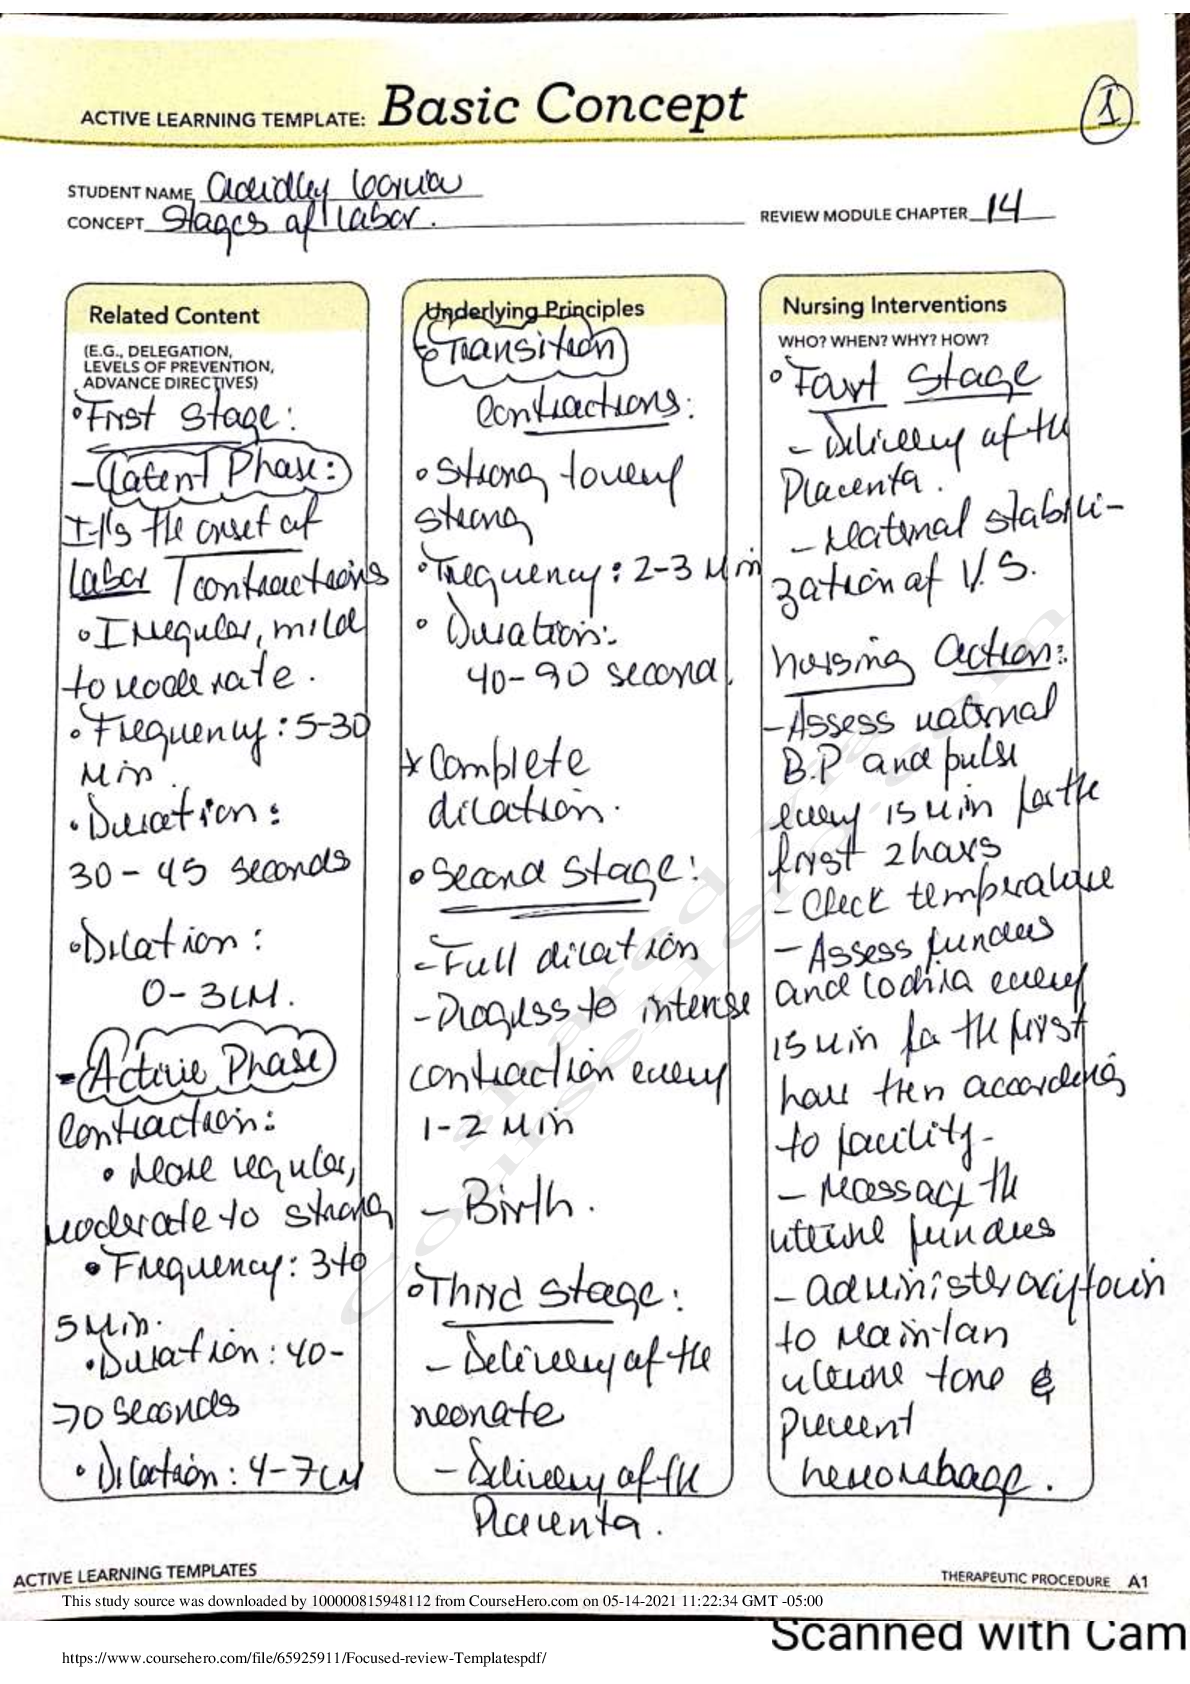 ACTIVE LEARNING TEMPLATE: Basic Concept
1
STUDENT NAME
CONCEPT Stages of labor.
REVIEW MODULE CHAPTER 14
Related Content
(E.G., DELEGATION,
LEVELS OF PREVENTION,
ADVANCE DIRECTIVES)
• First Stage:
- Latent Phase:
It's the onset of
labor / contractions
• Irregular, mild
to moderate.
• Frequency: 5-30
Min.
• Duration:
30-45 seconds
• Dilation:
0-3CM.
- Active Phase
Contraction:
• More regular,
moderate to strong
• Frequency: 3 to
5 Min.
• Duration: 40-
70 seconds
• Dilation: 4-7CM
Underlying Principles
• Transition
Contractions:
• Strong to very
strong
• Frequency: 2-3 Min
• Duration:
40-90 second.
* Complete
dilation.
• Second Stage:
- Full dilation
- Progress to intense
contraction every
1-2 Min
- Birth.
• Third Stage:
- Delivery of the
neonate
- Delivery of the
Placenta.
Nursing Interventions
WHO? WHEN? WHY? HOW?
• Fourt Stage
- Delivery of the
Placenta.
- Maternal stabili-
zation of V.S.
Nursing action:
- Assess maternal
B.P and pulse
every 15 Min for the
first 2 hours
- Check temperature
- Assess fundus
and lochia every
15 Min for the first
hour then according
to facility-
- Massage the
uterine fundus
- administer oxytocin
to maintan
uterine tone &
prevent
hemorrhage.
ACTIVE LEARNING TEMPLATES
THERAPEUTIC PROCEDURE A1
This study source was downloaded by 100000815948112 from CourseHero.com on 05-14-2021 11:22:34 GMT -05:00
Scanned with Cam
https://www.coursehero.com/file/65925911/Focused-review-Templatespdf/